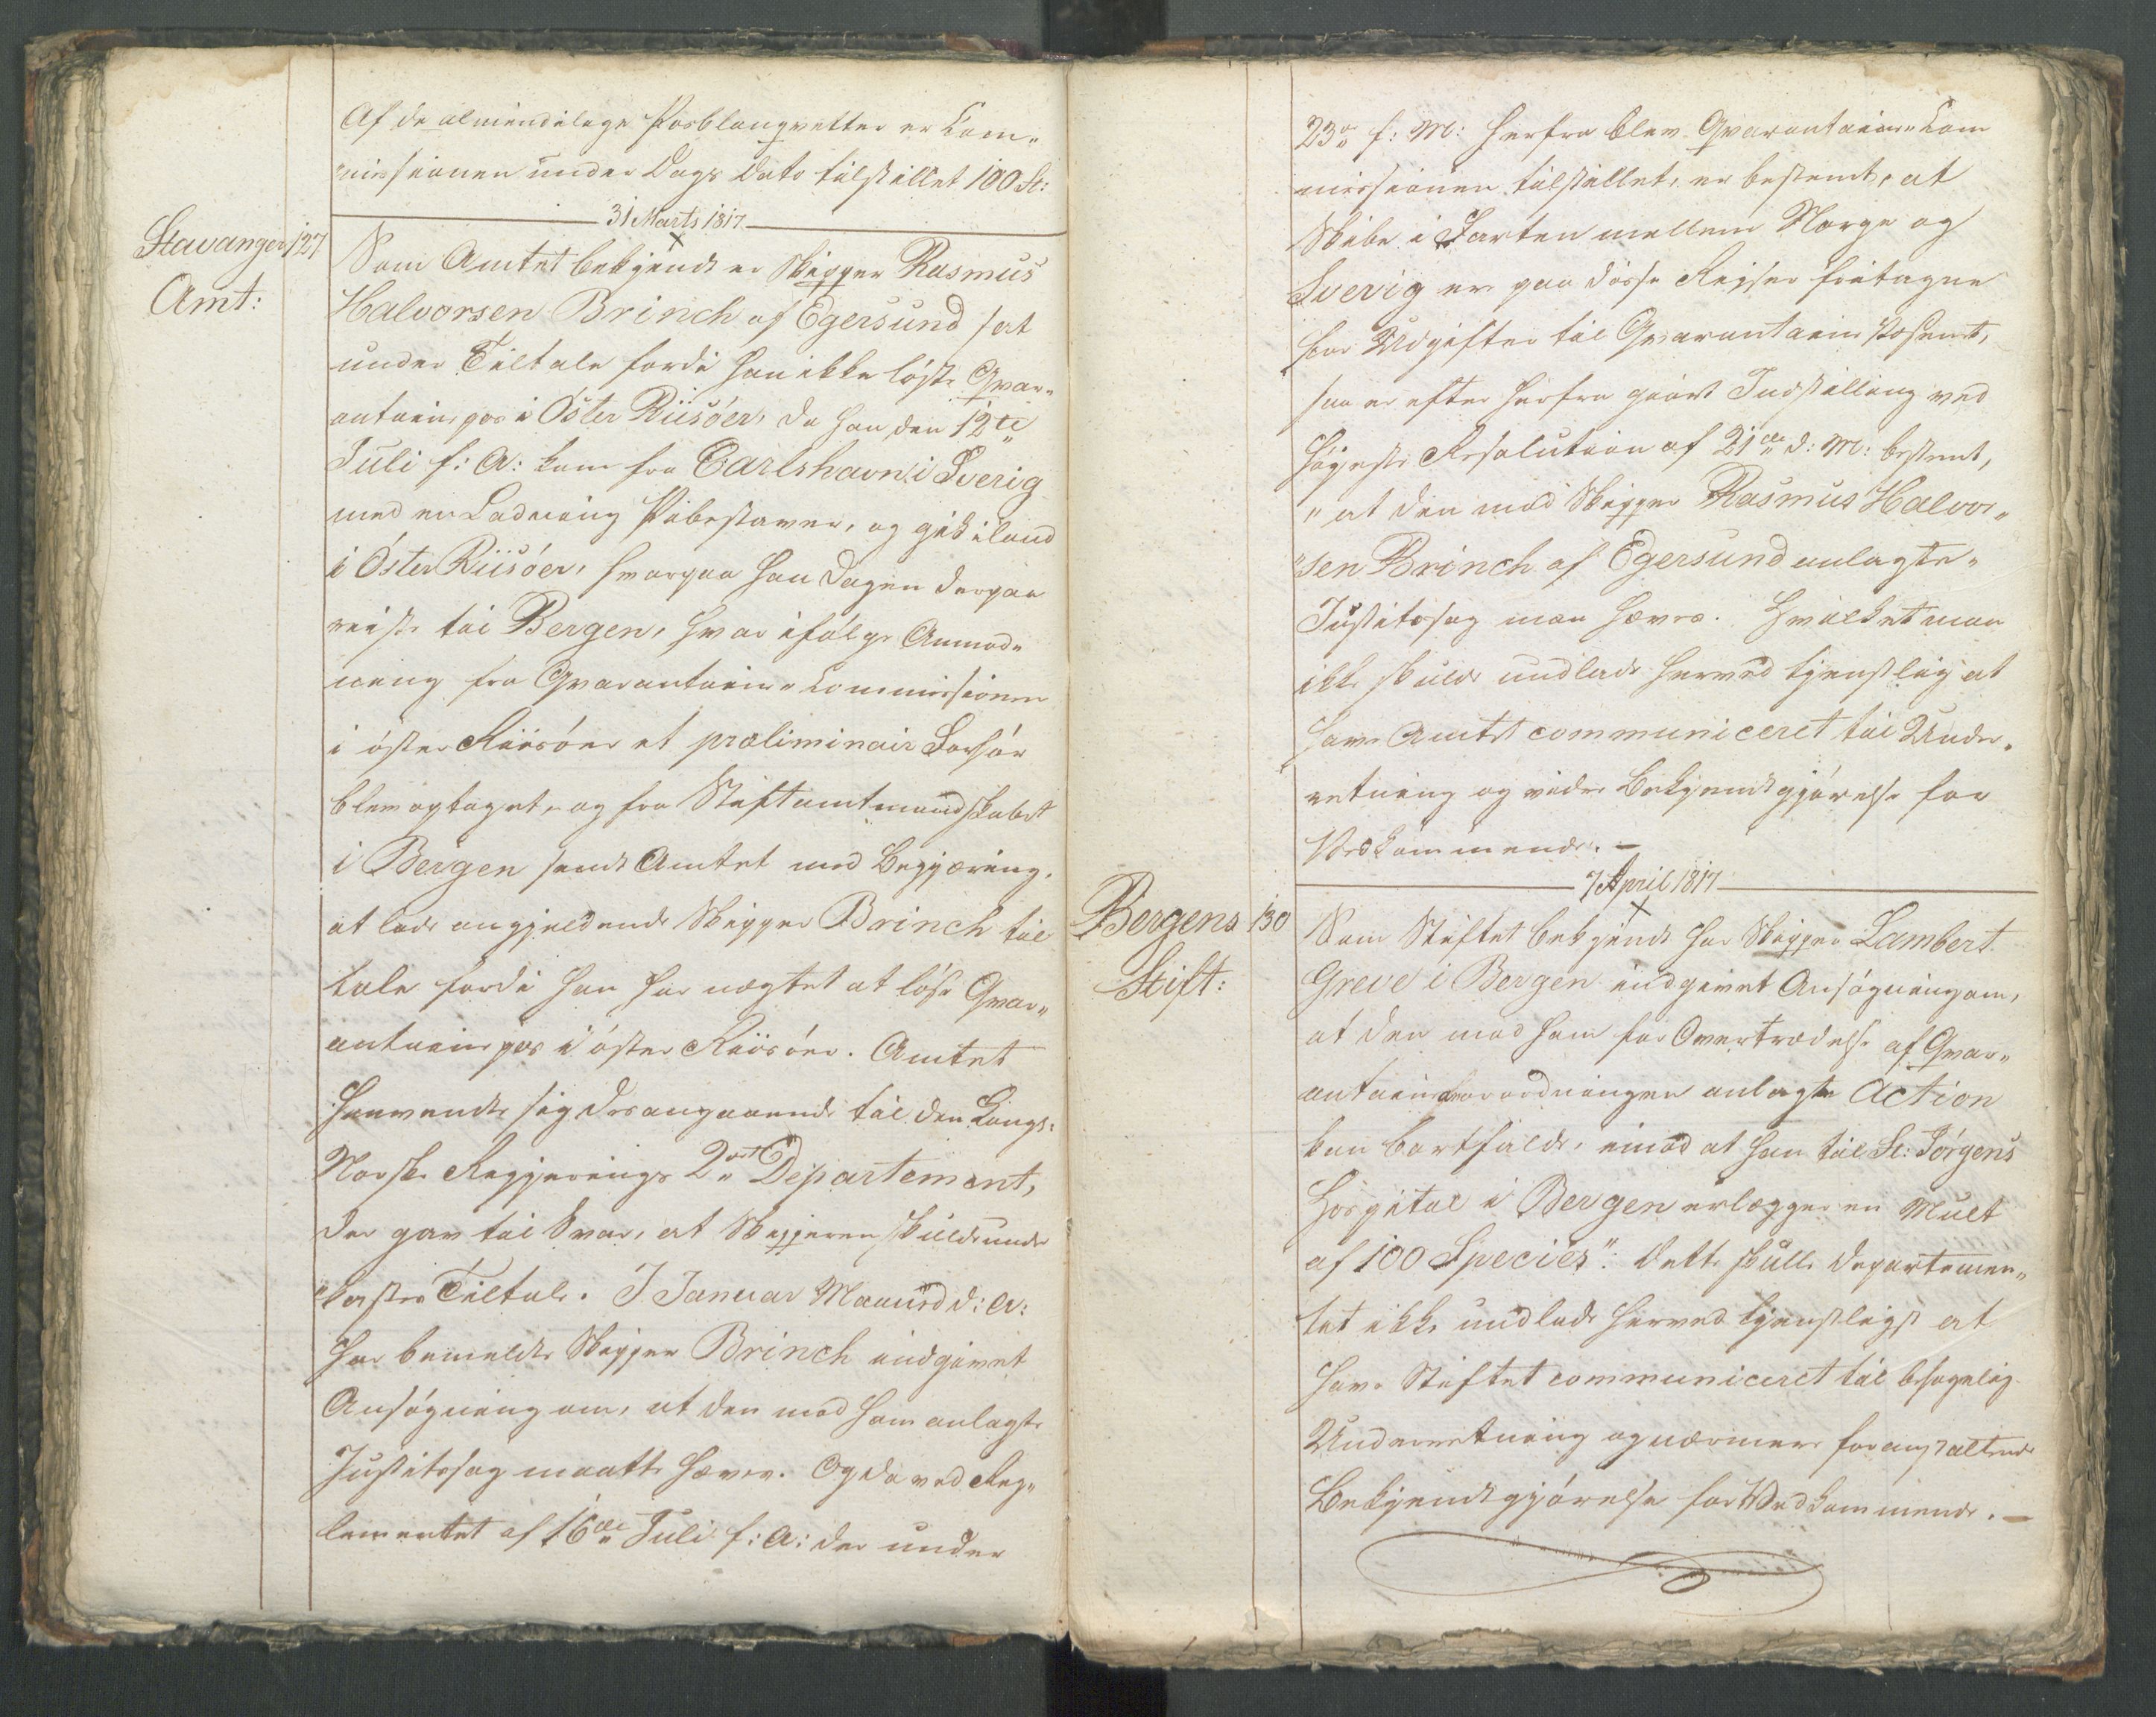 Af de almindelige Pasblanqvetter er Com„
„missionen under Dags Dato tilstillet 100 St:
31 Marts 1817
Stavanger 127
Amt:
Som Amtet bekjendt er Skipper Rasmus
Halvorsen Brinch af Egersund sat
under Tiltale fordi han ikke löste Qvar„
antainepas i Öster Riisöer, da han den 12te
Juli f: A: kom fra Carlshavn i Sverig
med en Ladning Pibestaver, og gik iland
i Öster Riisöer, hvorpaa han Dagen derpaa
reiste til Bergen, hvor ifölge Anmod„
ning fra Qvarantaine„Commissionen
i öster Riisöer et præliminair Forhör
blev optaget, og fra Stiftamtmandskabet
i Bergen sendt Amtet med Begjæring,
at lade angjeldende Skipper Brinch til
tale fordi han har nægtet at löse Qvar„
antainepas i öster Riisöer. Amtet
henvendte sig desangaaende til den Kongl:
Norske Regjerings 2det Departement,
der gav til Svar, at Skipperen skulde under
„kastes Tiltale. I Januar Maaned d: A:
har bemeldte Skipper Brinch indgivet
Ansögning om, at den mod ham anlagte
Justitssag maatte hæves. Og da ved Reg„
lementet af 16de Juli f: A: der under
23de f: M: herfra blev Qvarantaine„Com
missionen tilstillet, er bestemt, at
Skibe i Farten mellem Norge og
Sverig er paa disse Reiser fritagne
for Udgifter til Qvarantainevæsenet,
saa er efter herfra gjort Indstilling ved
höyeste Resolution af 21de d: M: bestemt,
„at den mod Skipper Rasmus Halvor„
„sen Brinch af Egersund anlagte„
Justitssag maa hæves. Hvilket man
ikke skulde undlade herved tjenstlig at
have Amtet communiceret til Under„
retning og videre Bekjendtgjörelse for
Vedkommende. —
7 April 1817
Bergens 130
Stift:
Som Stiftet bekjendt har Skipper Lambert
Greve i Bergen indgivet Ansögning om,
at den mod ham for Overtrædelse af Qvar„
antaineforordningen anlagte Action
kan bortfalde, imod at han til St: Jörgens
Hospital i Bergen erlægger en Mulct
af 100 Species": Dette skulle Departemen„
tet ikke undlade herved tjenstligst at
have Stiftet communiceret til behagelig
Underretning og nærmere foranstaltende
Bekjendtgjörelse for Vedkommende. —